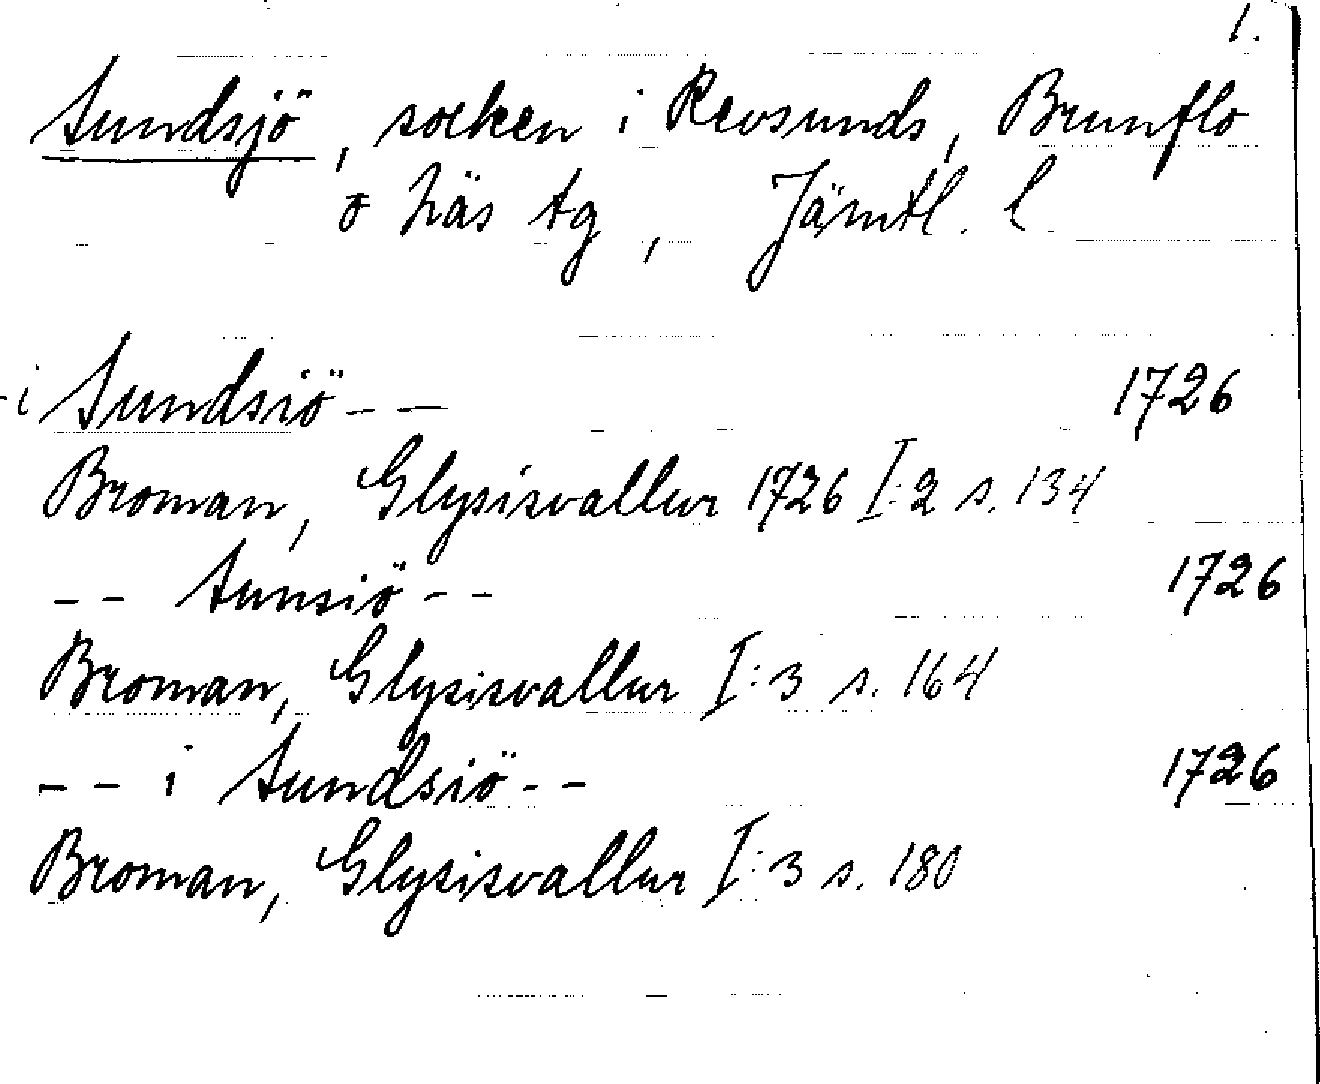 1.
Sundsjö, socken i Revsunds, Brunflo
o Näs tg, Jämtl. l
- i Sundsiö - - 1726
Broman, Glysisvallur 1726 I:2 s. 134
- - Sunsiö - - 1726
Broman, Glysisvallur I:3 s. 164
- - i Sundsiö - - 1726
Broman, Glysisvallur I:3 s. 180